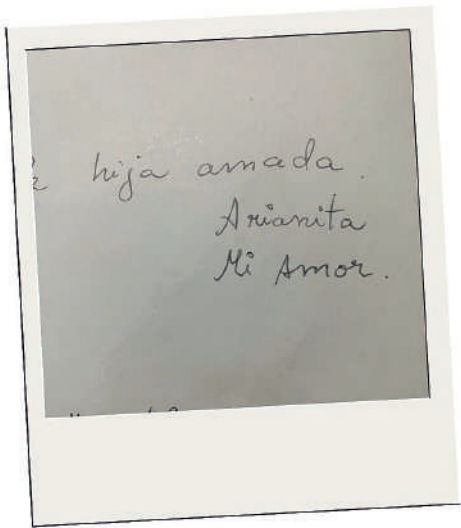 hija amada.
Arianita
Mi Amor.